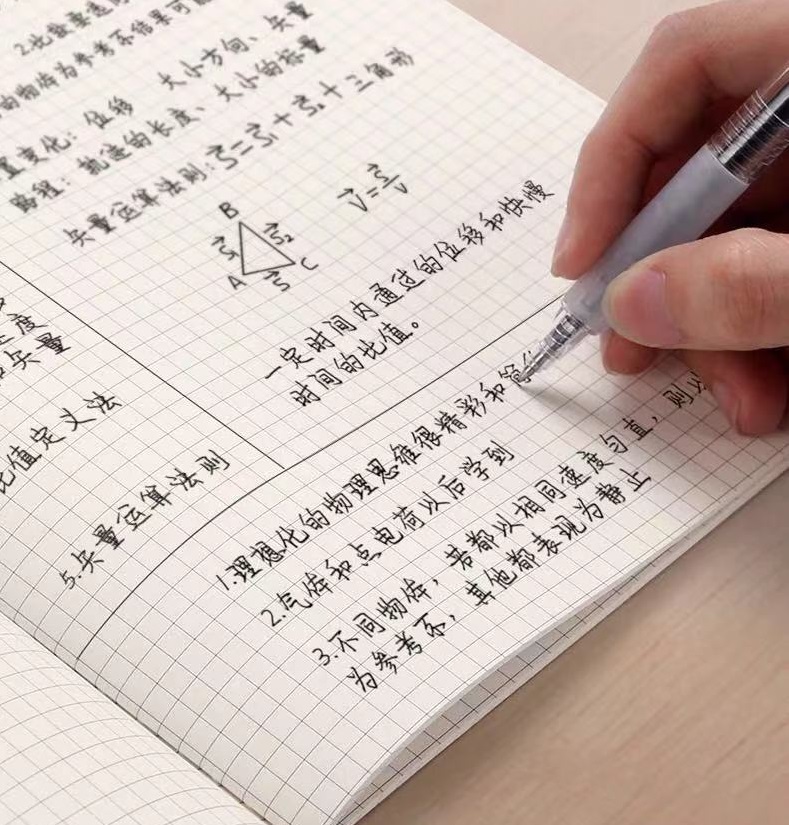 2.比较要选
的物体为参考不结果可能
置变化：位移 大小方向、矢量
路程：轨迹的长度、大小的标量
矢量运算法则：S⃗=S⃗₁+S⃗₂+三角形
B
S⃗₁ S⃗₂
A S⃗ C
V⃗=S⃗/V
一定时间内通过的位移和快慢
时间的比值。
度
矢量
比值定义法
5.矢量运算法则
1.理想化的物理思维很精彩和
2.气体和点电荷以后学到
3.不同物体，若都以相同速度匀直，则以
为参考系，其他都表现为静止